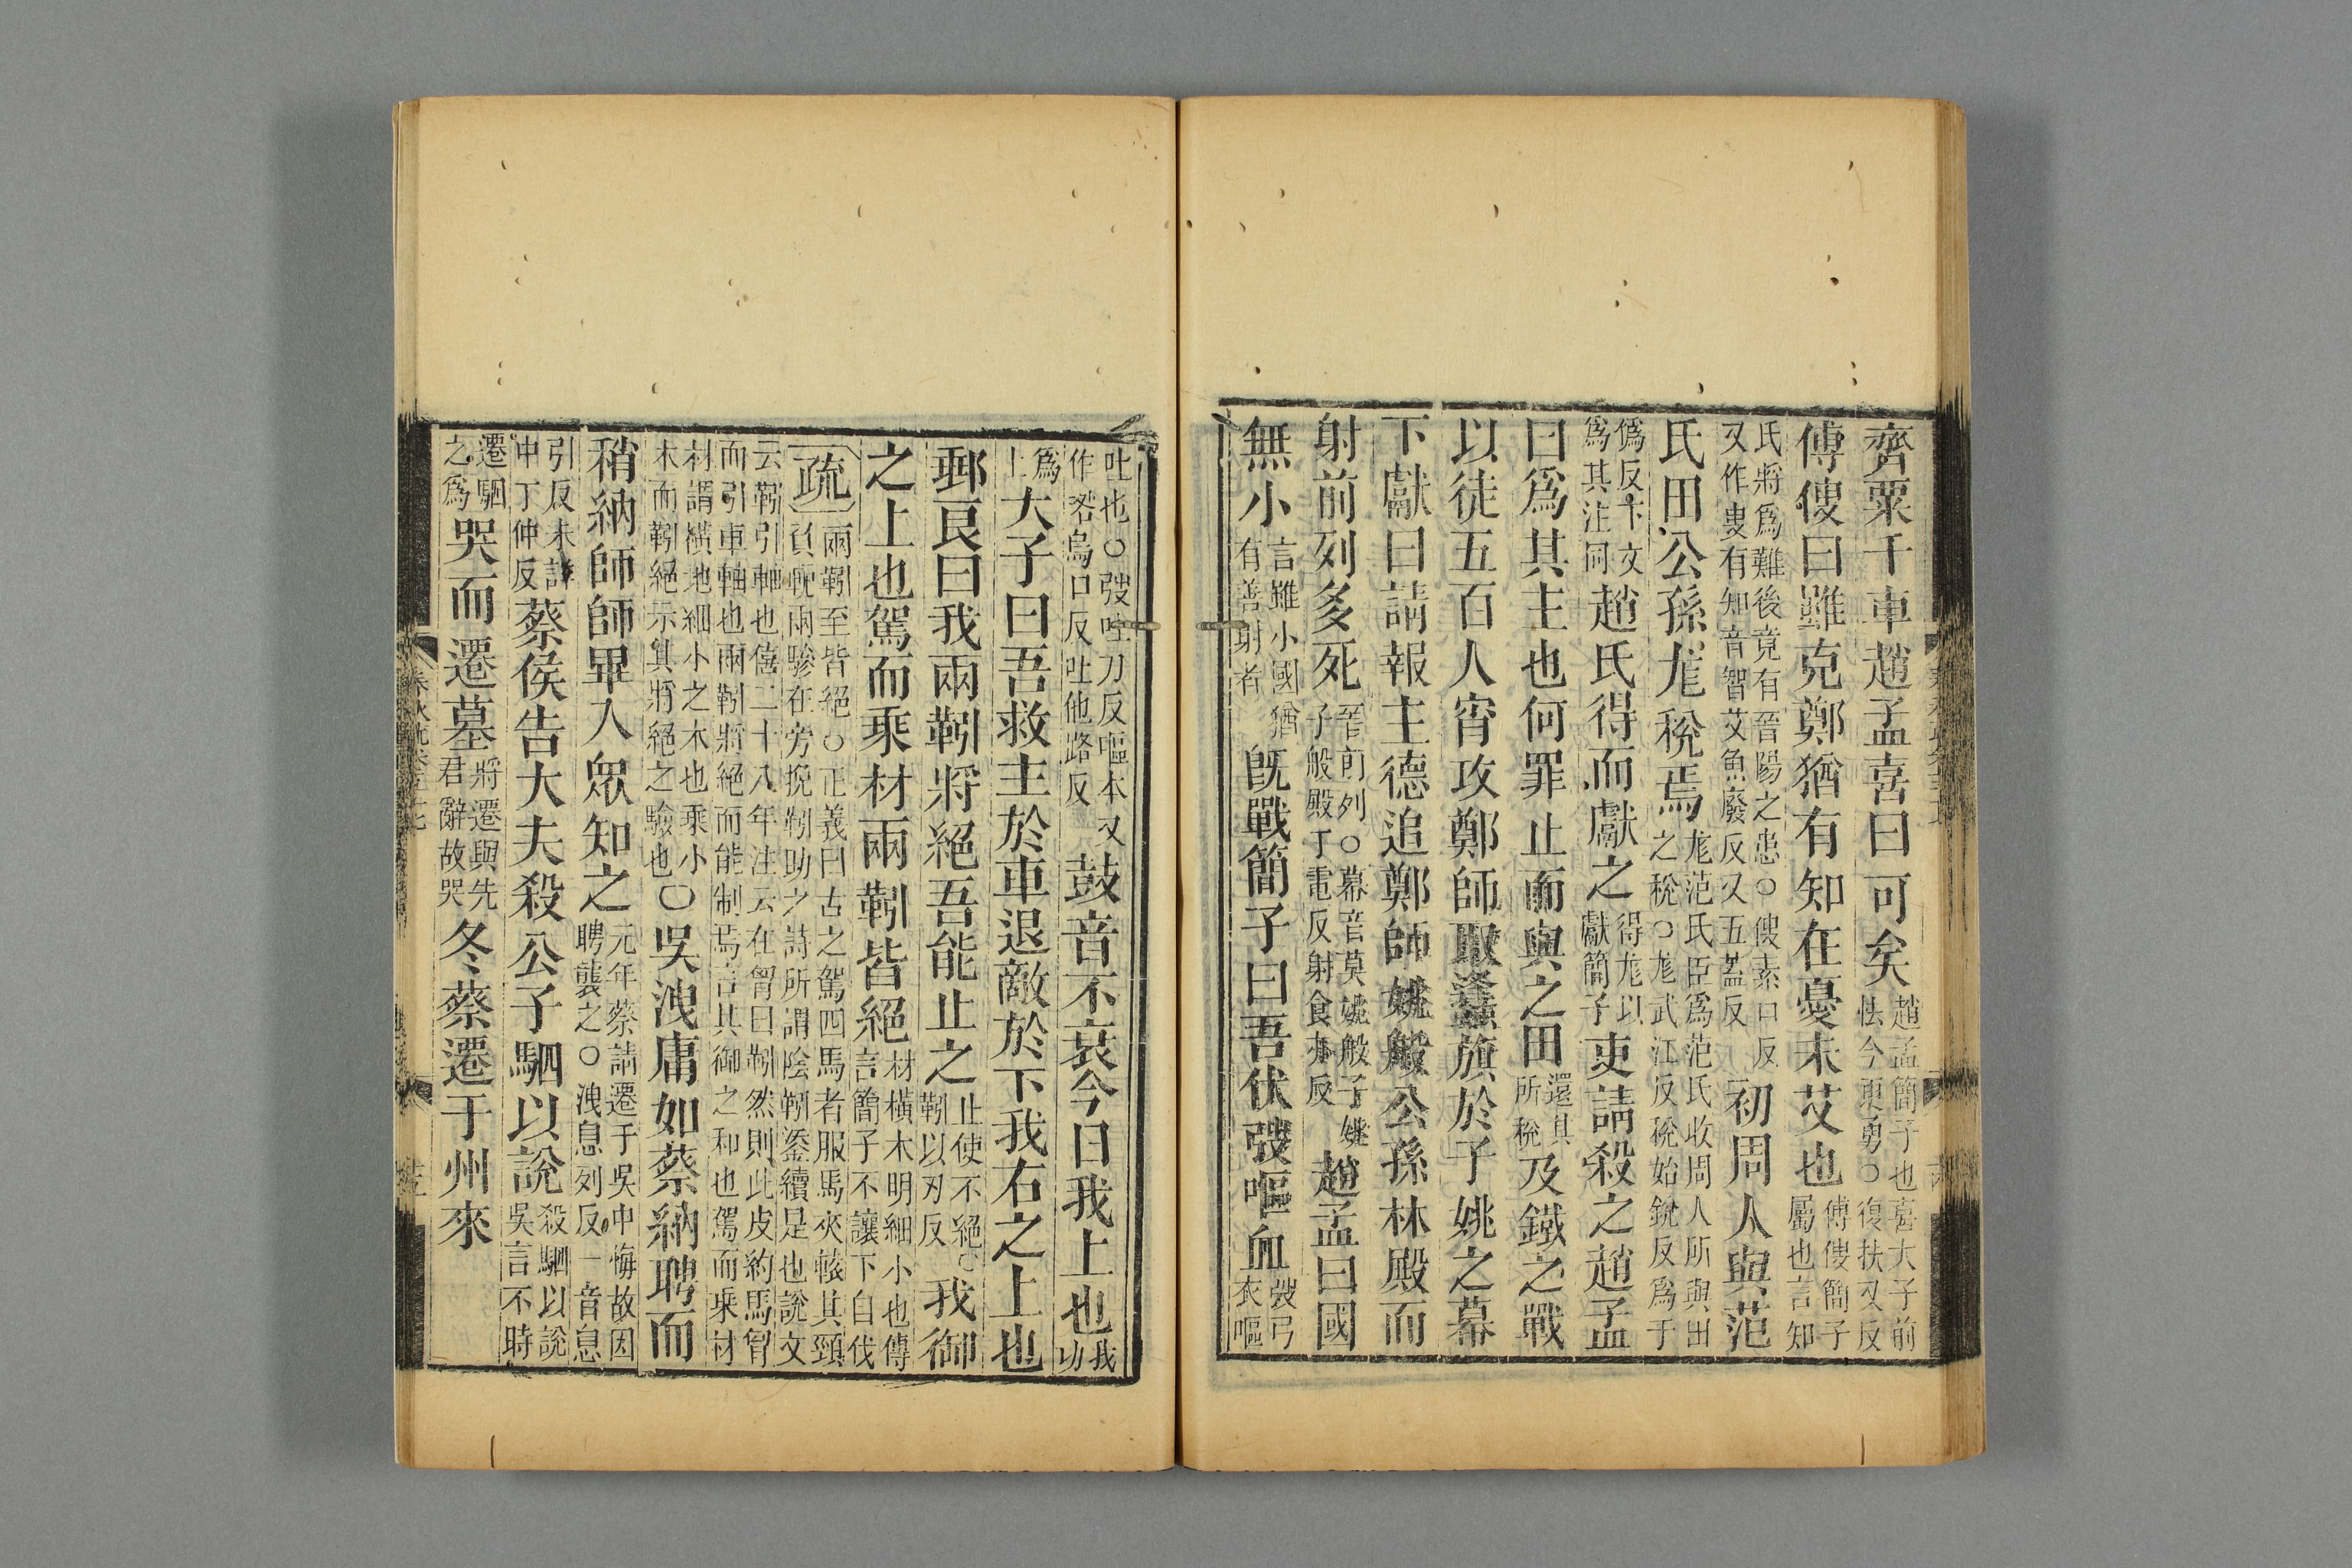 齊粟千車趙孟喜曰可矣趙孟簡子也喜大子前怯今更勇○復扶又反
傅傁曰雖克鄭猶有知在憂未艾也傅傁簡子屬也言知
氏將爲難後竟有晉陽之患○傁素口反又作叟有知音智艾魚廢反又五蓋反初周人與范
氏田公孫尨稅焉尨范氏臣爲范氏收周人所與田之稅○尨武江反稅始銳反爲于
僞反下文爲其注同趙氏得而獻之得尨以獻簡子吏請殺之趙孟
曰爲其主也何罪止而與之田還其所稅及鐵之戰
以徒五百人宵攻鄭師取蠭旗於子姚之幕
下獻曰請報主德追鄭師姚般公孫林殿而
射前列多死晉前列○幕音莫姚般子姚子般殿丁電反射食亦反趙孟曰國
無小言雖小國猶有善射者旣戰簡子曰吾伏弢嘔血弢弓衣嘔
吐也○弢吐刀反嘔本又作㰶烏口反吐他路反鼓音不衰今日我上也我功
爲上大子曰吾救主於車退敵於下我右之上也
郵良曰我兩靷將絕吾能止之止使不絕○靷以刃反我御
之上也駕而乘材兩靷皆絕材橫木明細小也傳言簡子不讓下自伐
疏兩靷至皆絕○正義曰古之駕四馬者服馬夾轅其頸負軛兩驂在旁挽靷助之詩所謂陰靷鋈續是也說文
云靷引軸也僖二十八年注云在胷曰靷然則此皮約馬胷而引車軸也兩靷將絕而能制焉言其御之和也駕而乘材
材謂橫地細小之木也乘小木而靷絕示其將絕之驗也○吳洩庸如蔡納聘而
稍納師師畢入眾知之元年蔡請遷于吳中悔故因聘襲之○洩息列反一音息
引反未詳中丁仲反蔡侯告大夫殺公子駟以說殺駟以說吳言不時
遷駟之爲哭而遷墓將遷與先君辭故哭冬蔡遷于州來